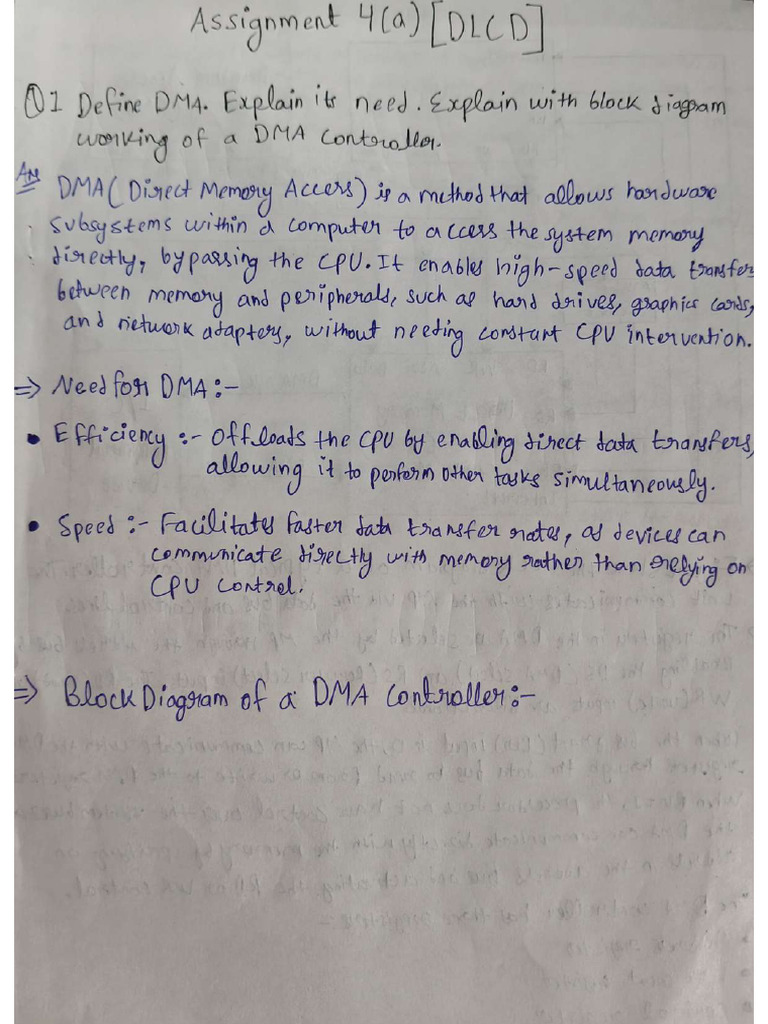 Assignment 4(a) [DLCD]
Q1 Define DMA. Explain its need. Explain with block diagram
working of a DMA Controller.
Ans DMA (Direct Memory Access) is a method that allows hardware
subsystems within a computer to access the system memory
directly, bypassing the CPU. It enables high-speed data transfer
between memory and peripherals, such as hard drives, graphics cards,
and network adapters, without needing constant CPU intervention.
⇒ Need for DMA:-
• Efficiency :- Offloads the CPU by enabling direct data transfers,
allowing it to perform other tasks simultaneously.
• Speed :- Facilitates faster data transfer rates, as devices can
communicate directly with memory rather than relying on
CPU control.
⇒ Block Diagram of a DMA Controller:-